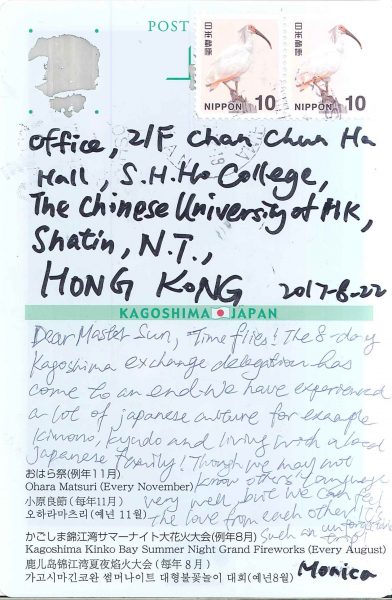 POST
日本郵便
NIPPON 10
日本郵便
NIPPON 10
Office, 2/F Chan Chun Ha
Hall, S.H.Ho College,
The Chinese University of HK,
Shatin, N.T.,
HONG KONG 2017-8-22
KAGOSHIMA JAPAN
Dear Master Sun, Time flies! The 8-day
Kagoshima exchange delegation has
come to an end. We have experienced
a lot of japanese culture for example
Kimono, kyudo and living with a local
japanese family! Though we may not
know others' language
very well, but we can feel
the love from each other. It's
such an unforgivable
trip!
おはら祭(例年11月)
Ohara Matsuri (Every November)
小原良節(每年11月)
오하라마츠리(예년 11월)
かごしま錦江湾サマーナイト大花火大会(例年8月)
Kagoshima Kinko Bay Summer Night Grand Fireworks (Every August)
鹿儿岛锦江湾夏夜焰火大会(每年8月)
가고시마긴코완 썸머나이트 대형불꽃놀이 대회(예년8월)
Monica